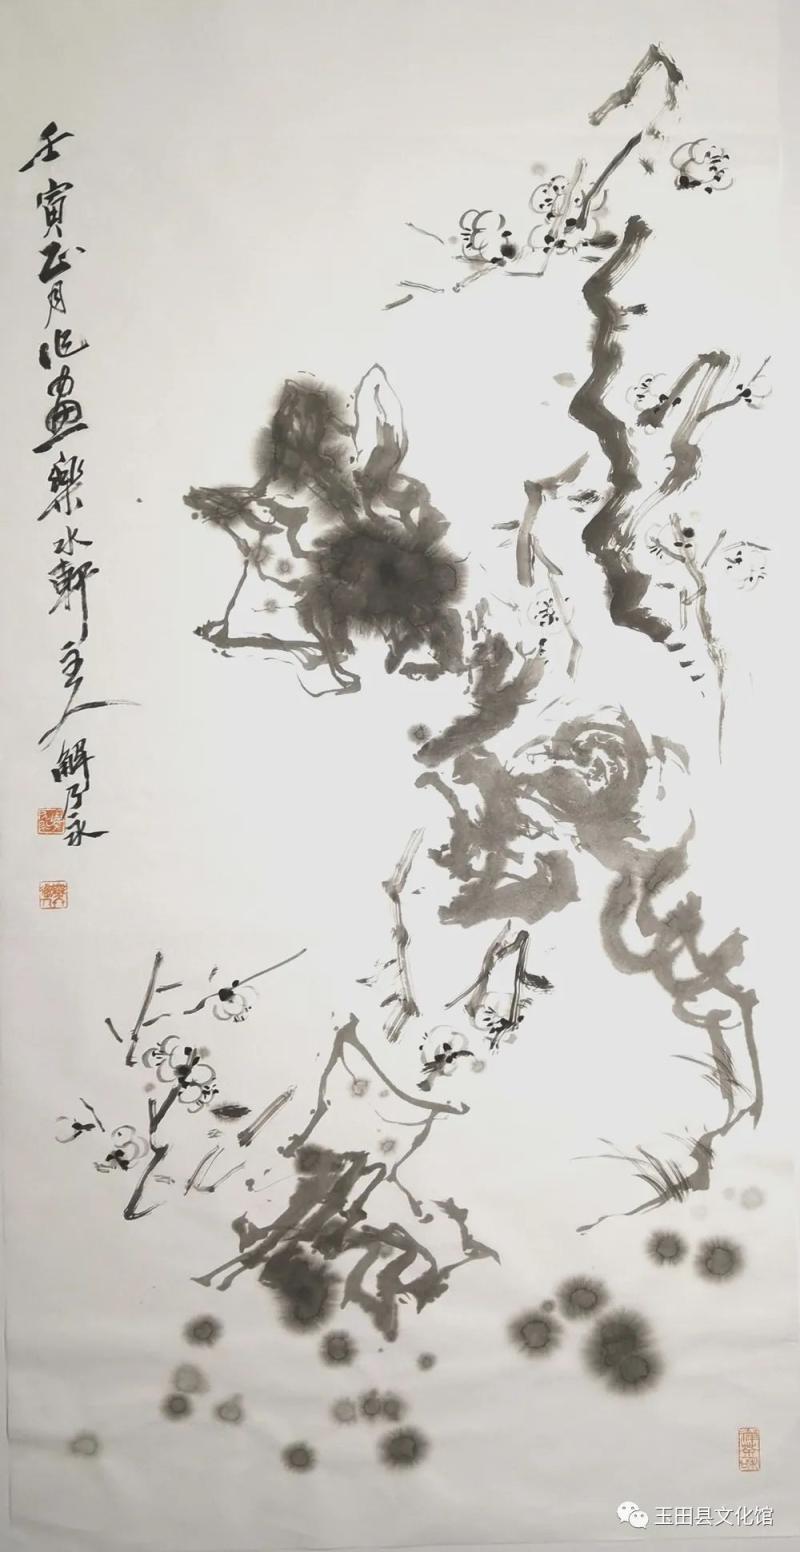 壬寅正月作畫樂水軒主人
解乃永
玉田县文化馆